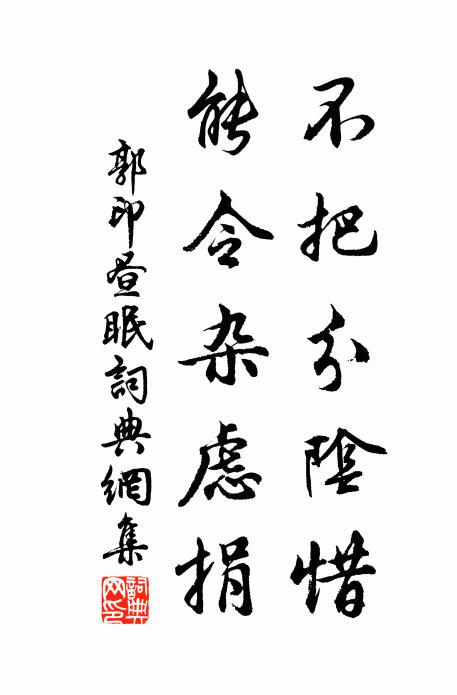 不把分陰惜
能令杂虑捐
郭印昼眠詞典網集
詞典網印